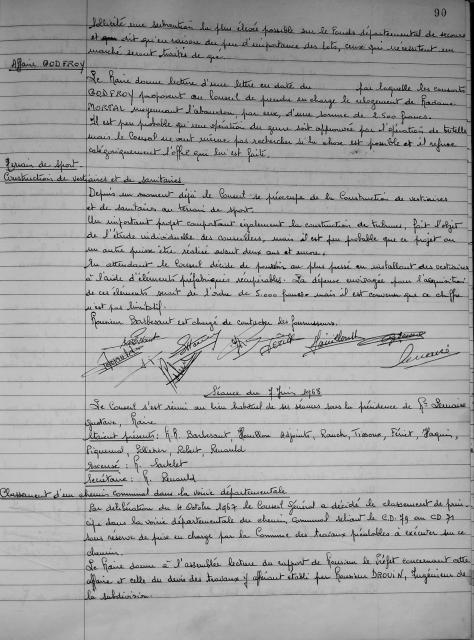 90
sollicite une subvention la plus élevée possible sur le Fonds départemental de secours
et dit qu'en raison du peu d'importance des lots, ceux qui resteront en
marché seront traités de gré.
Affaire GODEFROY
Le Maire donne lecture d'une lettre en date du par laquelle les consorts
GODEFROY proposent au Conseil de prendre en charge le relogement de Madame
MORTAL moyennant l'abandon, par eux, d'une somme de 2.500 francs.
Il est peu probable qu'une opération du genre soit approuvée par l'opération de tutelle
mais le Conseil ne veut même pas rechercher si la chose est possible et il refuse
catégoriquement l'offre qui lui est faite.
Terrain de sport -
Construction de vestiaires et de sanitaires
Depuis un moment déjà le Conseil se préoccupe de la Construction de vestiaires
et de sanitaires au terrain de sport.
Un important projet comportant également la construction de tribunes, fait l'objet
de l'étude individuelle des conseillers, mais il est peu probable que ce projet ou
un autre puisse être réalisé avant deux ans et encore.
En attendant le Conseil décide de pourvoir au plus pressé en installant des vestiaires
à l'aide d'éléments préfabriqués récupérables. La dépense envisagée pour l'acquisition
de ces éléments serait de l'ordre de 5.000 francs mais il est convenu que ce chiffre
n'est pas limitatif.
Monsieur Barbesant est chargé de contacter les fournisseurs.
Séance du 7 Juin 1968
Le Conseil s'est réuni au lieu habituel de ses séances sous la présidence de Mr Lemaire
Gustave, Maire
Etaient présents : M.M. Barbesant, Houillon Adjoints, Rauch, Tissoux, Féret, Haquin,
Piquenal, Pelletier, Robert, Renauld
Excusé : M.
Secrétaire : M. Renauld
Classement d'un chemin communal dans la voirie départementale
Par délibération du 4 Octobre 1967 le Conseil Général a décidé le classement de prin-
cipe dans la voirie départementale du chemin communal reliant le C.D. 79 au CD 71
sous réserve de prise en charge par la Commune des travaux préalables à exécuter sur ce
chemin.
Le Maire donne à l'assemblée lecture du rapport de Monsieur le Préfet concernant cette
affaire et celle du devis des travaux y afférant établi par Monsieur DROUIN, Ingénieur de
la subdivision.